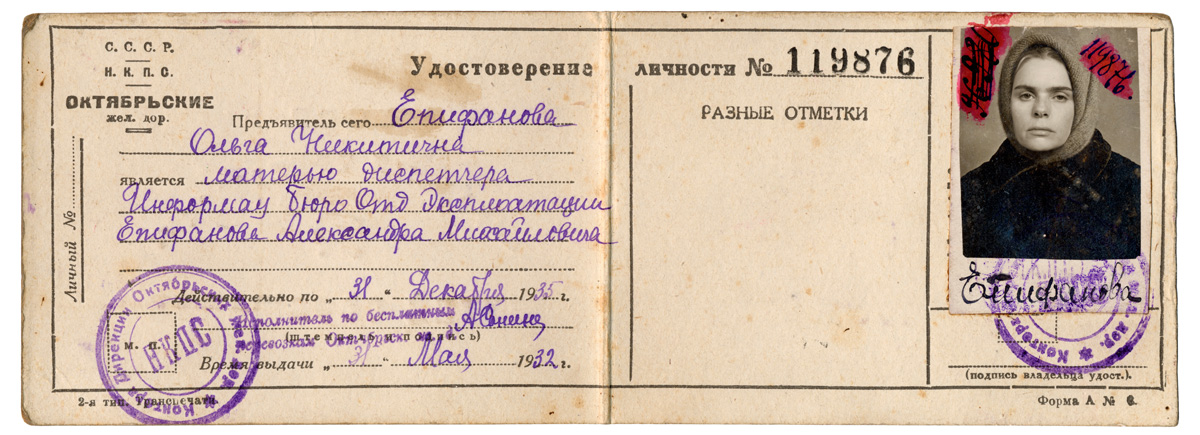 С. С. С. Р.
Н. К. П. С.
ОКТЯБРЬСКИЕ
жел. дор.
Личный №
Удостоверение личности № 119876
Предъявитель сего Епифанова
Ольга Никитична
является матерью диспетчера
Информац Бюро Отд Эксплоатации
Епифанова Александра Михайловича
Действительно по „31“ Декабря 1935 г.
Исполнитель по бесплатным
перевозкам Октябрьских
(штемпель и подпись)
м. п.
Время выдачи „31“ Мая 1932 г.
2-я тип. Трансжелдориздата
РАЗНЫЕ ОТМЕТКИ
119876.
Епифанова
(подпись владельца удост.).
Форма А № 6.
Контора Дирекции Октябрьских жел. дор.
НКПС